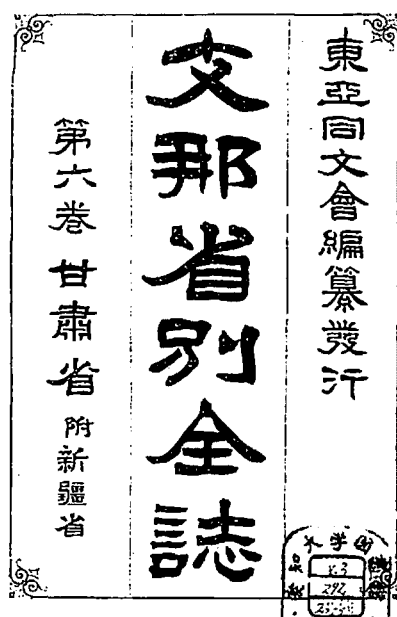 東亞同文會編纂發行
支那省別全誌
第六卷 甘肅省 附新疆省
大学図
292